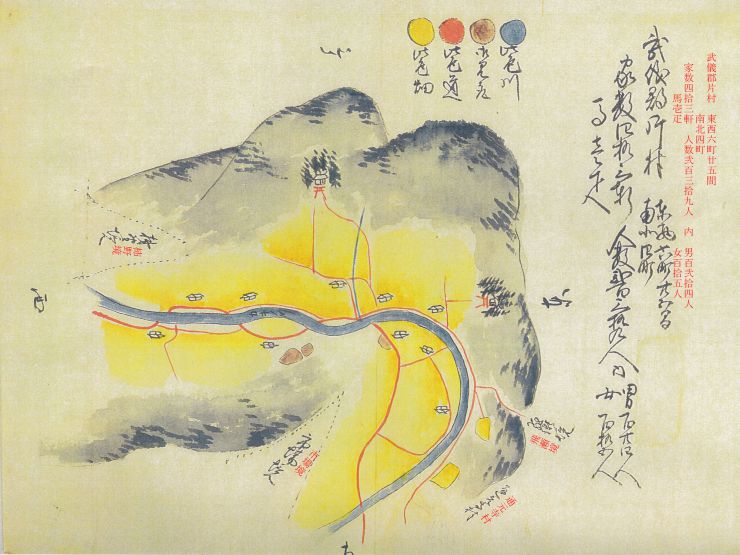 武儀郡片村　東西六町廿五間
南北四町
家数四拾三軒　人数弐百三拾九人　内　男百弐拾四人
女百拾五人
馬壱疋
武儀郡片村　東西六町廿五間
南北四町
家数四拾三軒　人数弐百三拾九人　内　男百弐拾四人
女百拾五人
馬壱疋
此色川
此色道
此色畑
柿野境
市場境
飛瀬境
通元寺村